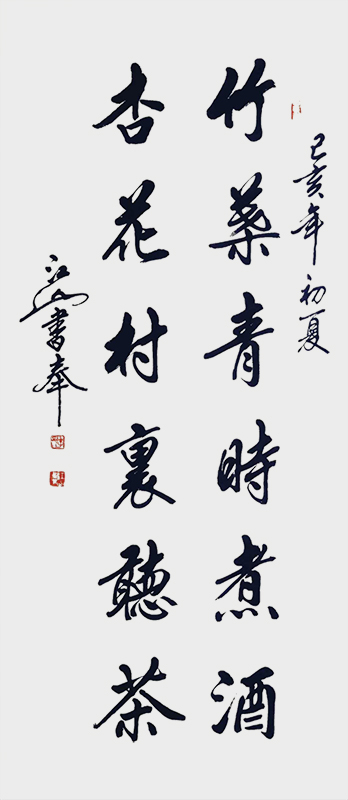 己亥年初夏
竹葉青時煮酒
杏花村裏聽茶
江山書奉